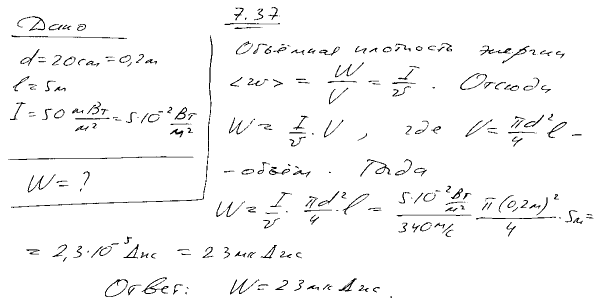 7.37
Дано
d = 20 cm = 0,2 m
l = 5 м
I = 50 мВт/м² = 5·10⁻² Вт/м²
W = ?
Объёмная плотность энергии
<w> = W/V = I/v . Отсюда
W = I/v · V , где V = πd²/4 l -
- объём. Тогда
W = I/v · πd²/4 · l = 5·10⁻² Вт/м² / 340 м/с · π(0,2м)²/4 · 5м =
= 2,3·10⁻⁵ Дж = 23 мкДж
Ответ: W = 23 мкДж.